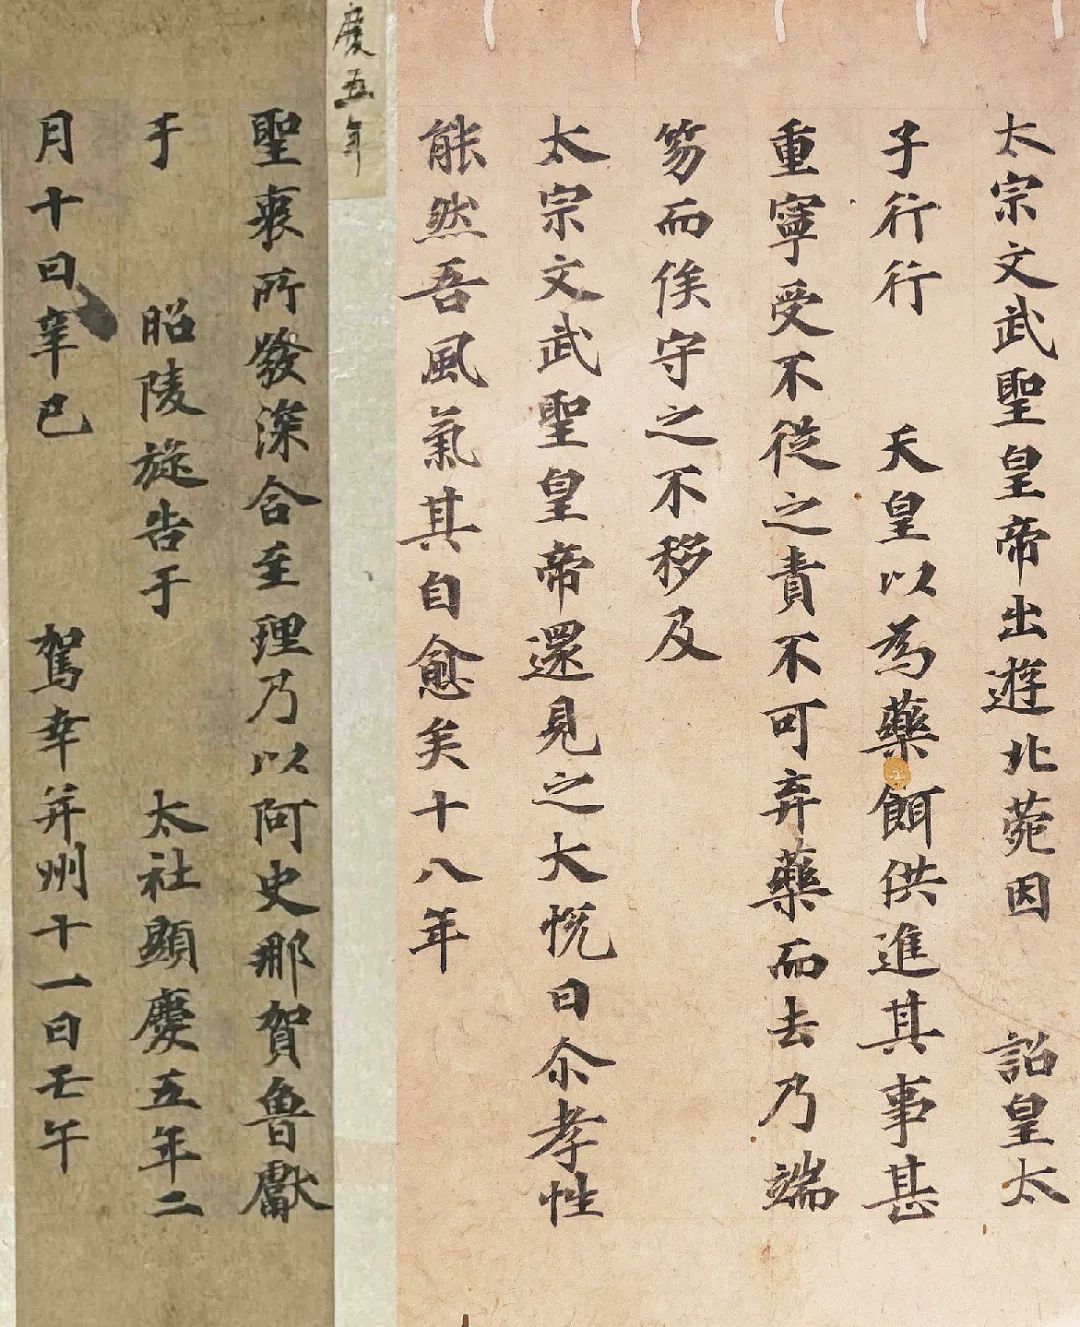 太宗文武聖皇帝出遊北菀因　詔皇太
子行行　天皇以為藥餌供進其事甚
重寧受不從之責不可弃藥而去乃端
笏而俟守之不移及
太宗文武聖皇帝還見之大悅曰尒孝性
能然吾風氣其自愈矣十八年
慶五年
聖衷所發深合至理乃以阿史那賀魯獻
于　昭陵旋告于　太社顯慶五年二
月十日辛巳　駕幸并州十一日壬午